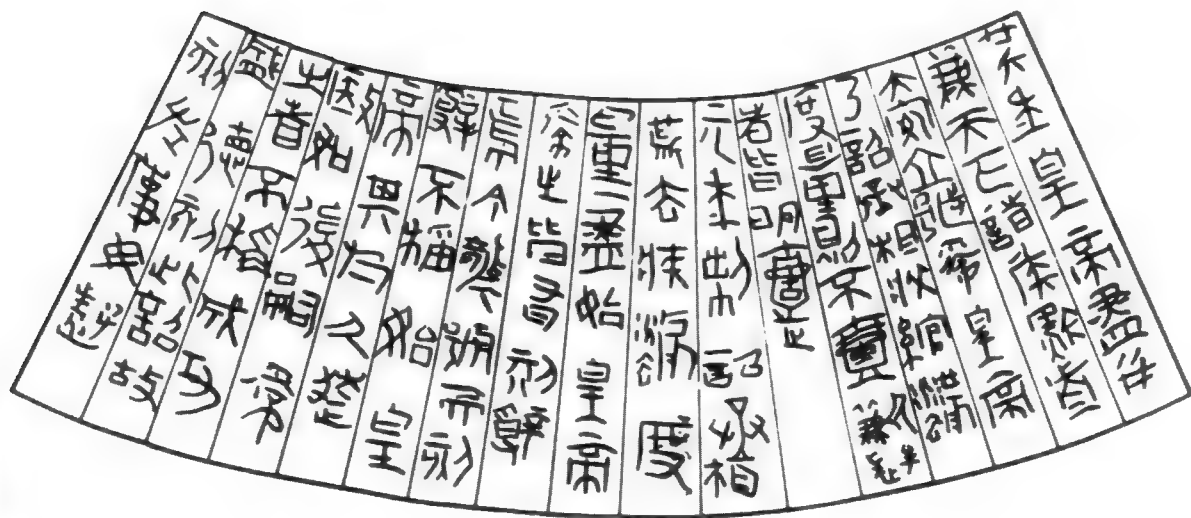 廿六年皇帝盡并
兼天下諸侯黔首
大安立號為皇帝
乃詔丞相狀綰灋
度量則不壹歉疑
者皆明壹之
元年制詔丞相
斯去疾灋度
量盡始皇帝
為之皆有刻辭
焉今襲號而刻
辭不稱始皇
帝其於久遠
殹如後嗣為
之者不稱成功
盛德刻此詔故
刻左使毋疑